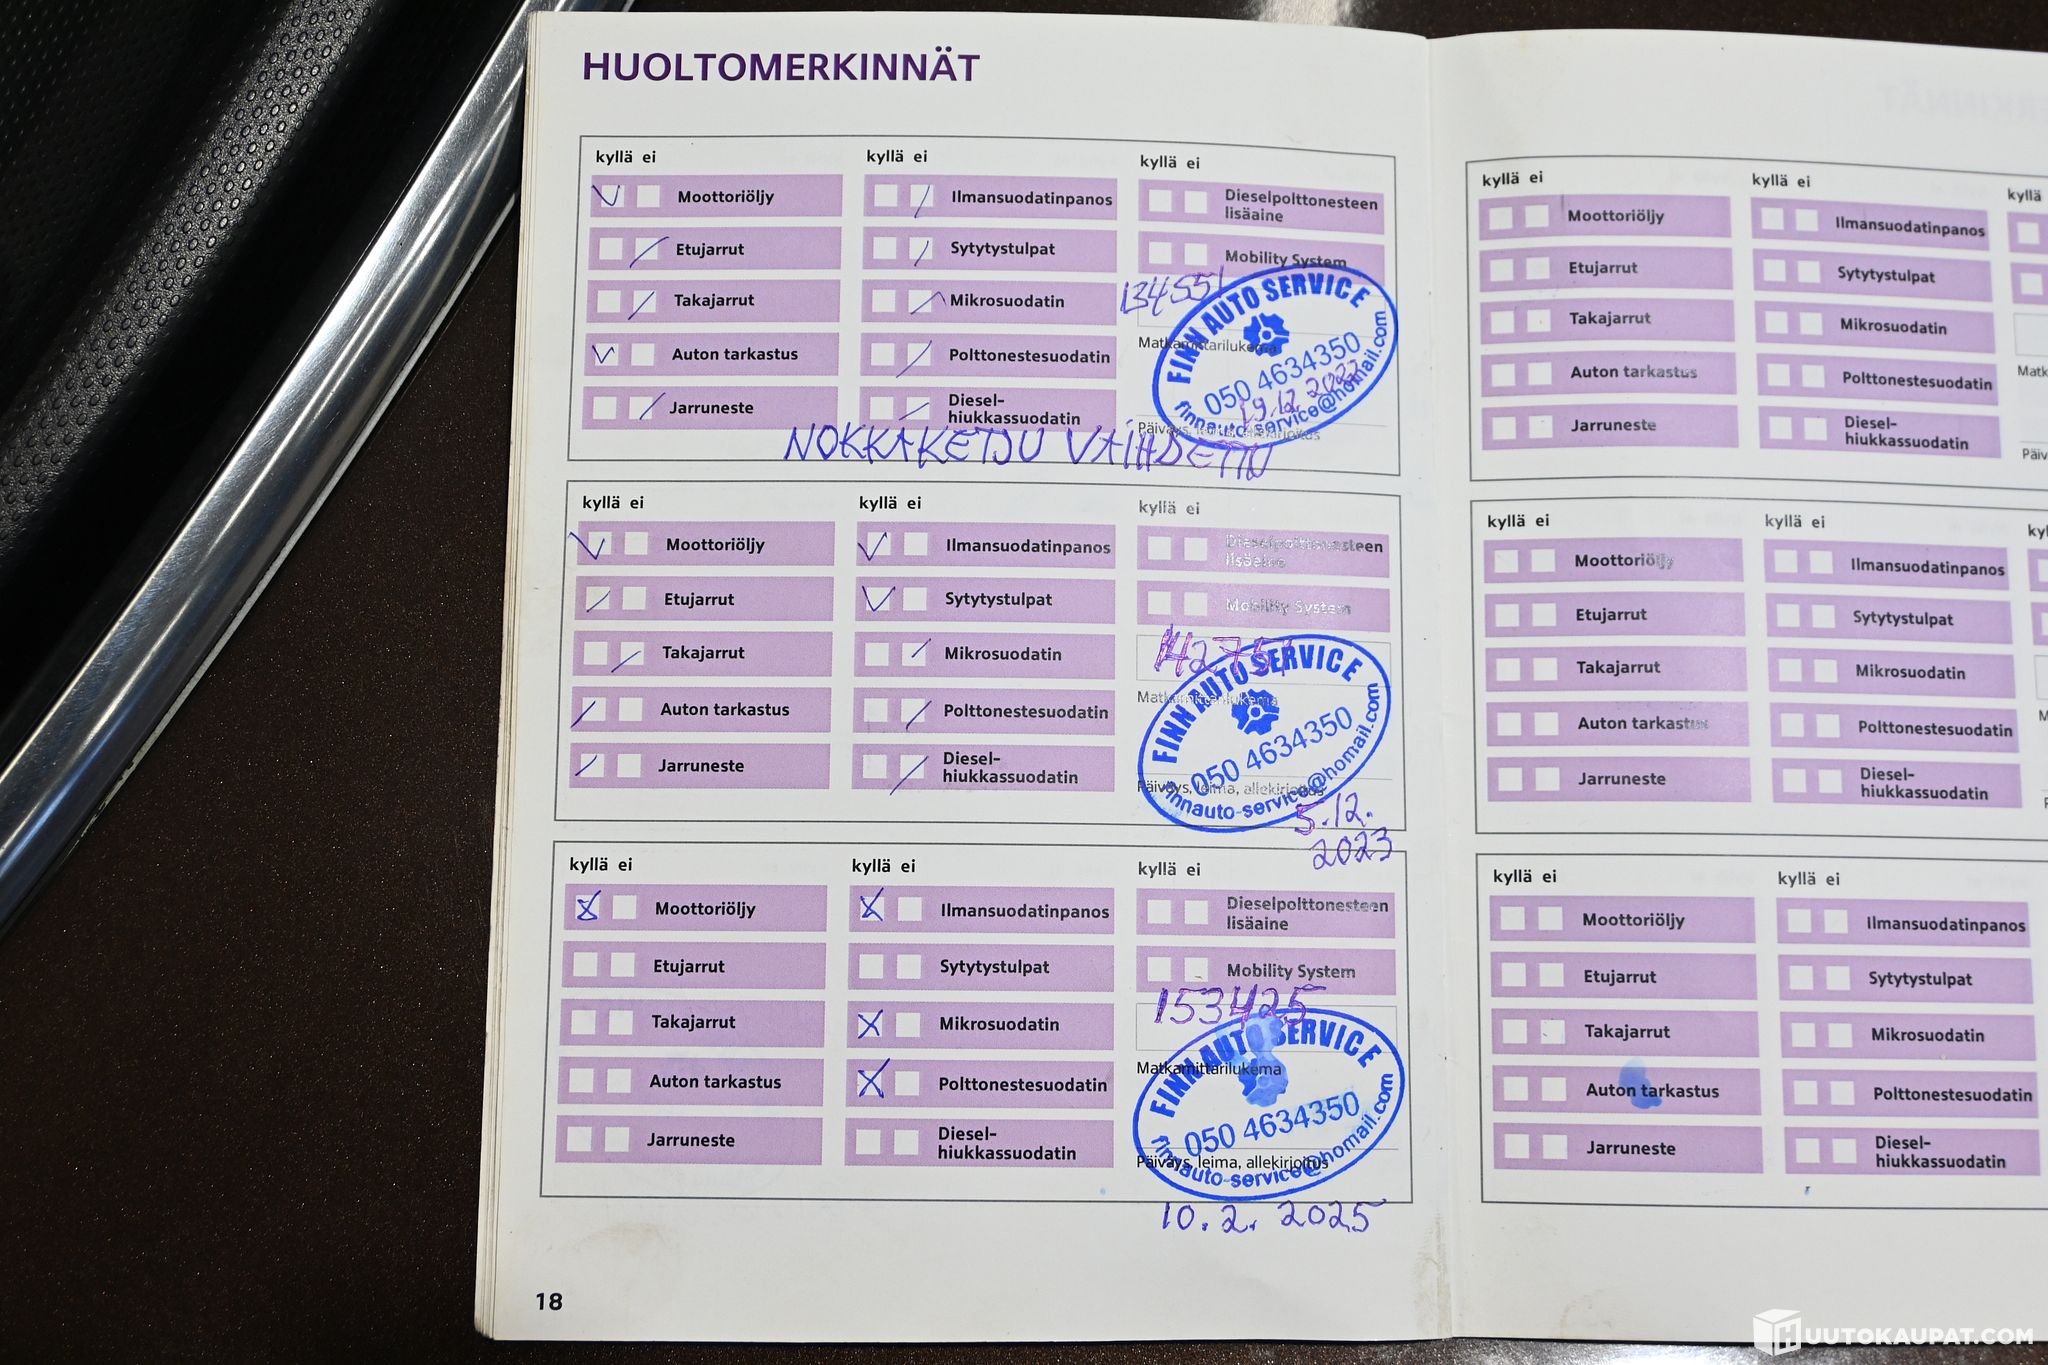 HUOLTOMERKINNÄT
kyllä ei
kyllä ei
kyllä ei
Moottoriöljy
Ilmansuodatinpanos
Dieselpolttonesteen
lisäaine
Etujarrut
Sytytystulpat
Mobility System
Takajarrut
Mikrosuodatin
134551
Auton tarkastus
Polttonestesuodatin
Matkamittarilukema
Jarruneste
Diesel-
hiukkassuodatin
Päiväys, leima, allekirjoitus
FINN AUTO SERVICE
050 4634350
finnauto-service@homail.com
19.12
NOKKAKETJU VAIHDETTU
kyllä ei
kyllä ei
kyllä ei
Moottoriöljy
Ilmansuodatinpanos
Dieselpolttonesteen
lisäaine
Etujarrut
Sytytystulpat
Mobility System
Takajarrut
Mikrosuodatin
Auton tarkastus
Polttonestesuodatin
Matkamittarilukema
Jarruneste
Diesel-
hiukkassuodatin
Päiväys, leima, allekirjoitus
FINN AUTO SERVICE
050 4634350
finnauto-service@homail.com
5.12.
2023
kyllä ei
kyllä ei
kyllä ei
Moottoriöljy
Ilmansuodatinpanos
Dieselpolttonesteen
lisäaine
Etujarrut
Sytytystulpat
Mobility System
Takajarrut
Mikrosuodatin
153425
Auton tarkastus
Polttonestesuodatin
Matkamittarilukema
Jarruneste
Diesel-
hiukkassuodatin
Päiväys, leima, allekirjoitus
FINN AUTO SERVICE
050 4634350
finnauto-service@homail.com
10.2. 2025
18
kyllä ei
kyllä ei
kyllä
Moottoriöljy
Ilmansuodatinpanos
Etujarrut
Sytytystulpat
Takajarrut
Mikrosuodatin
Auton tarkastus
Polttonestesuodatin
Jarruneste
Diesel-
hiukkassuodatin
kyllä ei
kyllä ei
Moottoriöljy
Ilmansuodatinpanos
Etujarrut
Sytytystulpat
Takajarrut
Mikrosuodatin
Auton tarkastus
Polttonestesuodatin
Jarruneste
Diesel-
hiukkassuodatin
kyllä ei
kyllä ei
Moottoriöljy
Ilmansuodatinpanos
Etujarrut
Sytytystulpat
Takajarrut
Mikrosuodatin
Auton tarkastus
Polttonestesuodatin
Jarruneste
Diesel-
hiukkassuodatin
HUUTOKAUPAT.COM